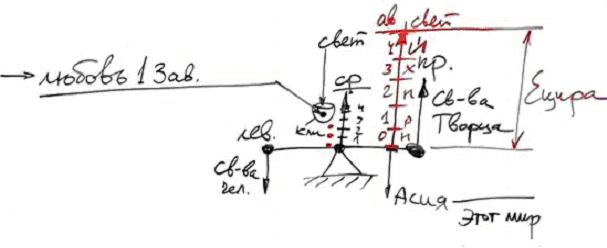 ав свет
свет
4 Й
пр.
3 Х
ср
2 П
Ецира
→ любовь 1 Зав.
св-ва
Творца
1 Р
кли
4
3
2
1
лев.
0 Н
св-ва
чел.
Асия
Этот мир